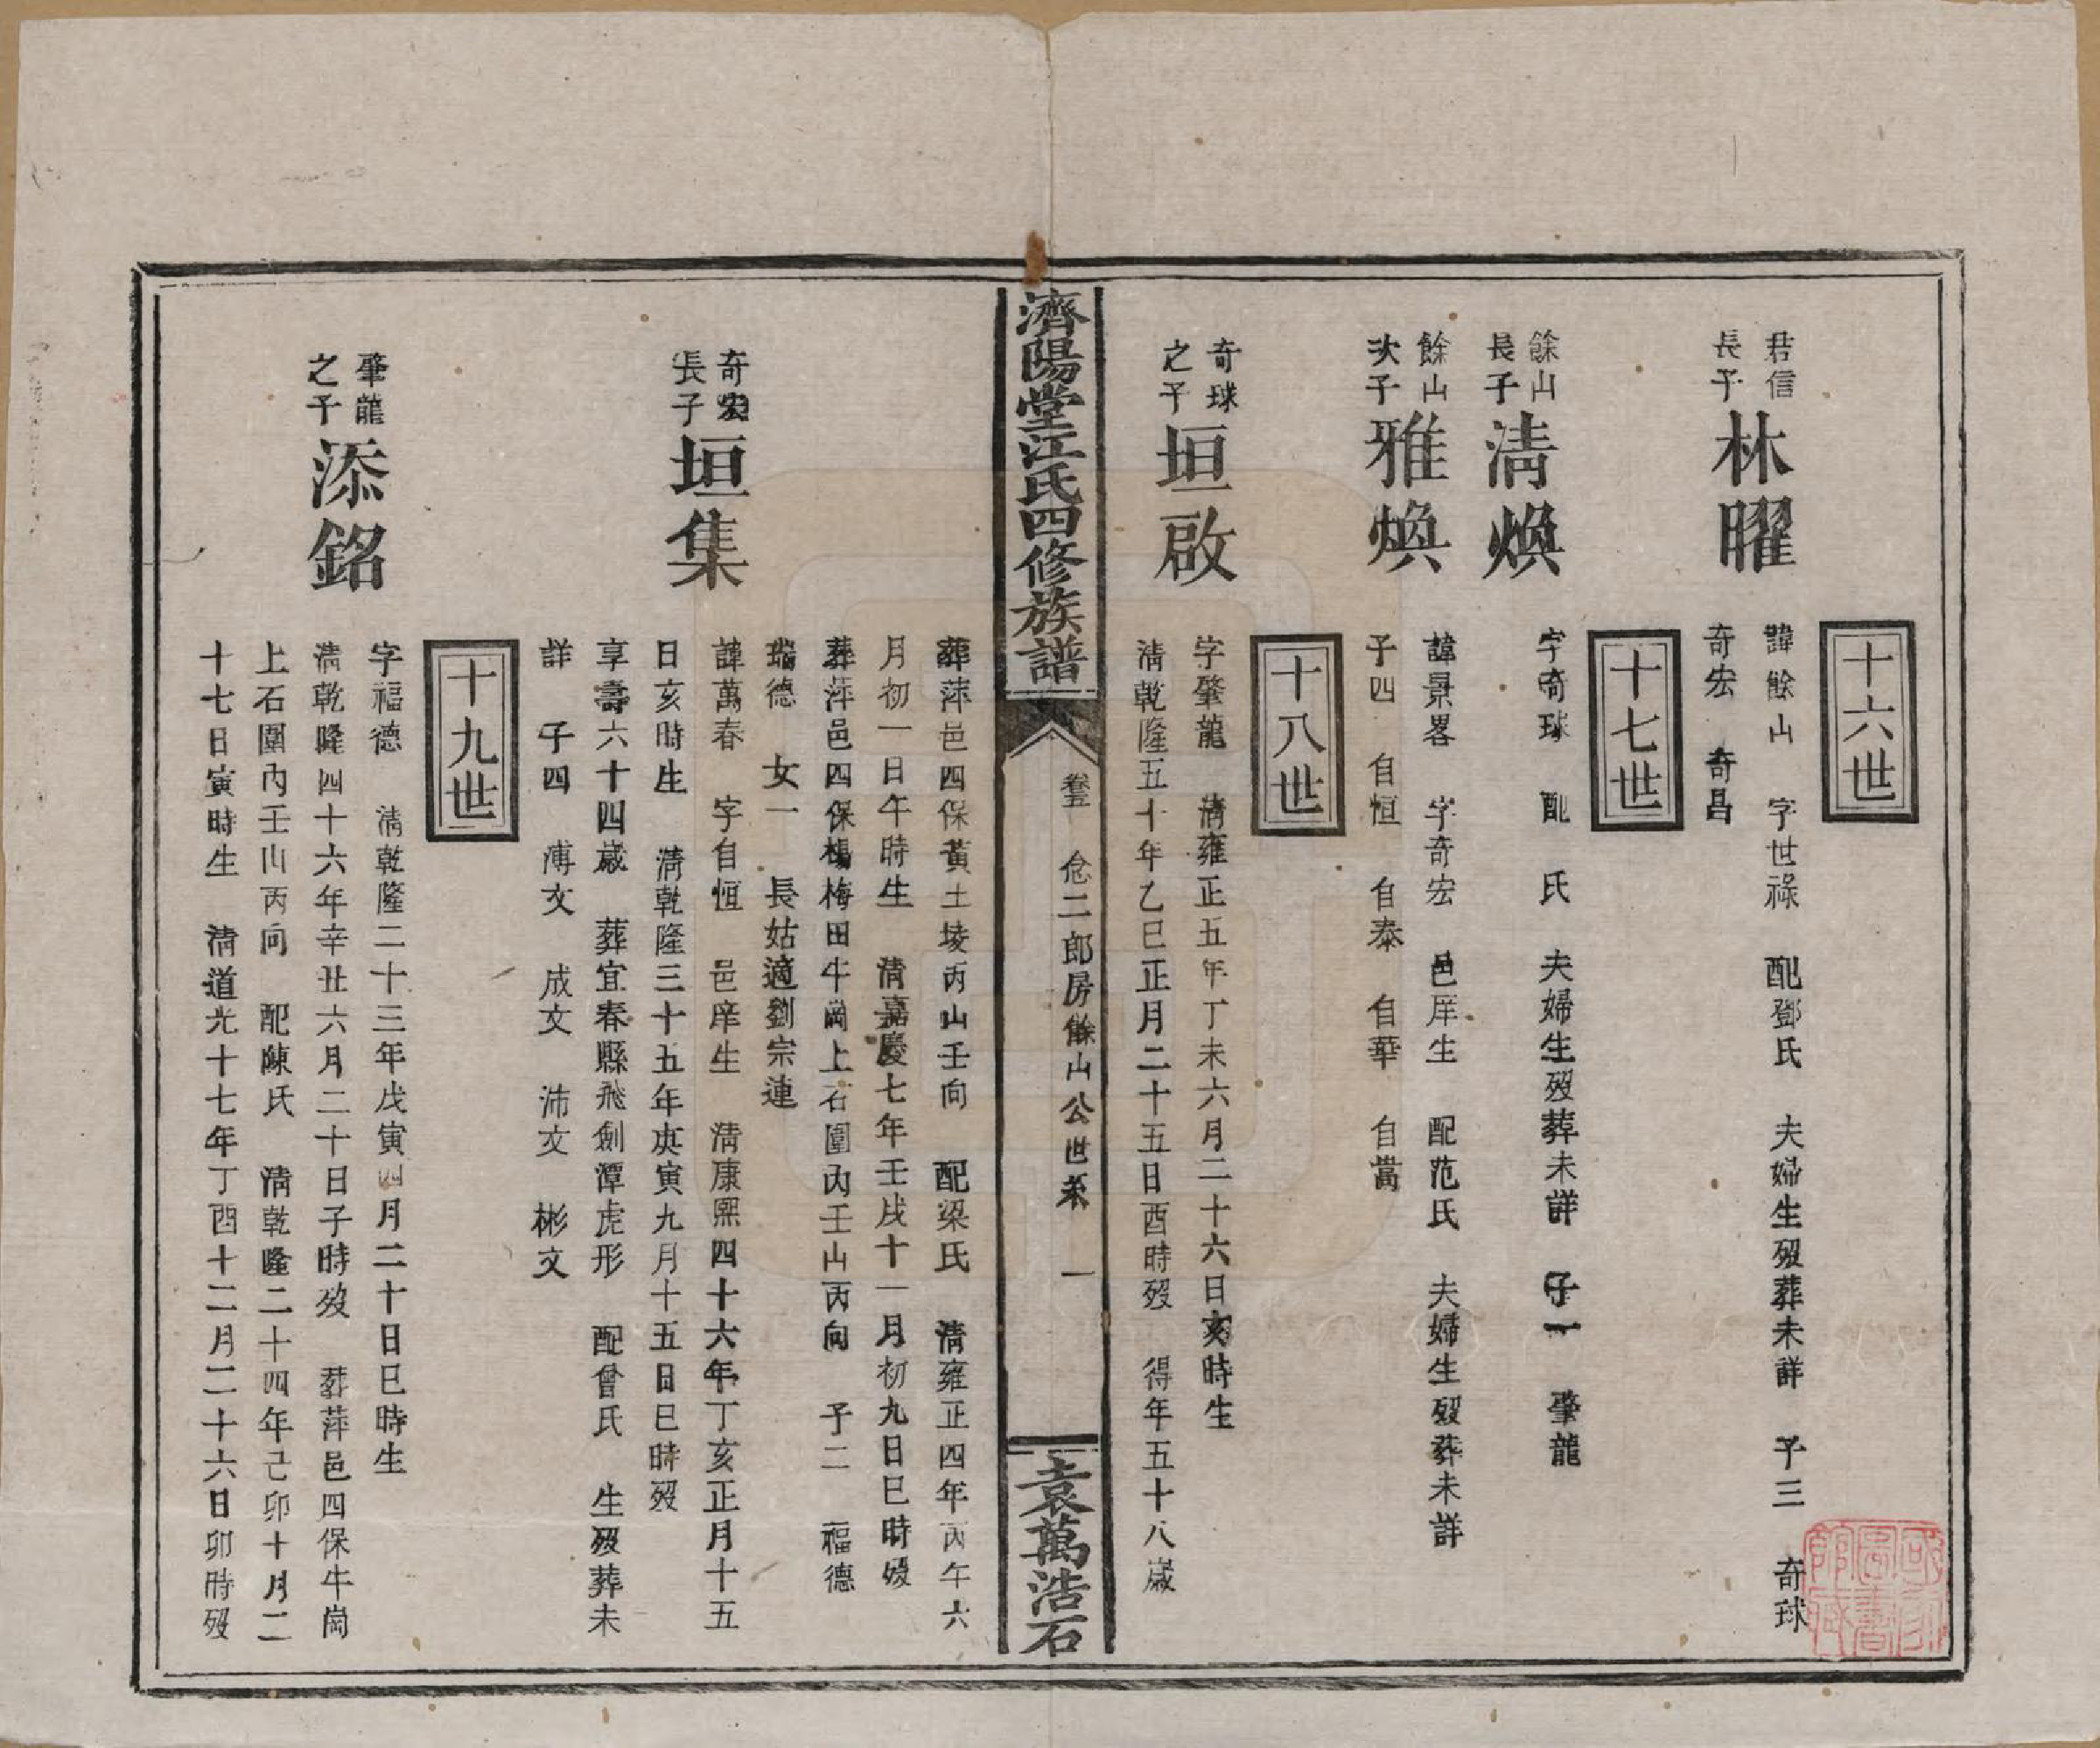 十六世
君信長子
林曜
諱餘山 字世祿 配鄧氏 夫婦生歿葬未詳 子三 奇球
奇宏 奇昌
十七世
餘山長子
清煥
字奇球 配 氏 夫婦生歿葬未詳 子一 肇龍
餘山次子
雅煥
諱景畧 字奇宏 邑庠生 配范氏 夫婦生歿葬未詳
子四 自恒 自泰 自華 自嵩
十八世
奇球之子
垣啟
字肇龍 清雍正五年丁未六月二十六日亥時生
清乾隆五十年乙巳正月二十五日酉時歿 得年五十八歲
濟陽堂江氏四修族譜
卷五 念二郎房餘山公世系 一
袁萬浩石
葬萍邑四保黃土埁丙山壬向 配梁氏 清雍正四年丙午六
月初一日午時生 清嘉慶七年壬戌十一月初九日巳時歿
葬萍邑四保楊梅田牛崗上石圍內壬山丙向 子二 福德
瑞德 女一 長姑適劉宗連
奇宏長子
垣集
諱萬春 字自恒 邑庠生 清康熙四十六年丁亥正月十五
日亥時生 清乾隆三十五年庚寅九月十五日巳時歿
享壽六十四歲 葬宜春縣飛劍潭虎形 配曾氏 生歿葬未
詳 子四 溥文 成文 沛文 彬文
十九世
肇龍之子
添銘
字福德 清乾隆二十三年戊寅四月二十日巳時生
清乾隆四十六年辛丑六月二十日子時歿 葬萍邑四保牛崗
上石圍內壬山丙向 配陳氏 清乾隆二十四年己卯十月二
十七日寅時生 清道光十七年丁酉十二月二十六日卯時歿
國家圖書館藏